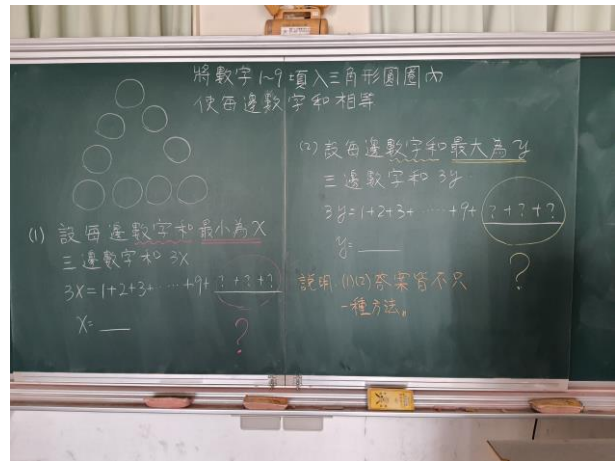 將數字1~9填入三角形圓圈內
使每邊數字和相等
(1) 設每邊數字和最小為X
三邊數字和3X
3X=1+2+3+……+9+?+?+?
?
X=
(2) 設每邊數字和最大為y
三邊數字和3y
3y=1+2+3+……+9+?+?+?
?
y=
說明:(1)(2)答案皆不只
一種方法。